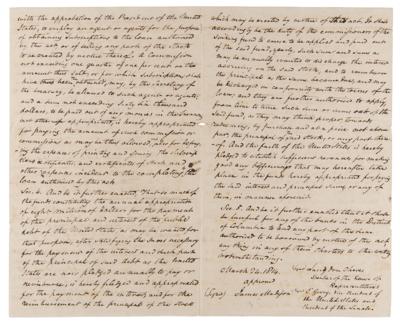 with the approbation of the President of the United
States, to employ an agent or agents for the purpose
of obtaining subscriptions to the loan authorised
by this act or of selling any part of the stock
to be created by virtue thereof; a commission
not exceeding one quarter of one per cent on the
amount thus sold, or for which subscriptions shall
have been thus obtained, may, by the secretary of
the treasury, be allowed to such agents or agents;
and a sum not exceeding sixty six thousand
dollars, to be paid out of any monies in the treasury
not otherwise appropriated, is hereby appropriated
for paying the amount of such commission or
commissions as may be thus allowed, also for defray-
ing the expences of printing and issuing the subscrip-
tions certificates and certificates of stock and
other expences incident to the completing the
loan authorised by this act.
Sec. 4. And be it further enacted, That so much of
the funds constituting the annual appropriation
of eight millions of dollars for the payment
of the principal and interest of the public
debt of the United States, as may be wanted for
that purpose, after satisfying the sums necessary
for the payment of the interest and such part
of the principal of said debt as the United
States are now pledged annually to pay or
reimburse, is hereby pledged and appropriated
for the payment of the interest and for the
reimbursement of the principal of the stock
which may be created by virtue of this act. It shall
accordingly be the duty of the commissioners of the
sinking fund to cause to be applied and paid out
of the said fund, yearly, such sum and sums as
may be annually wanted to discharge the interest
accruing on the said stock, and to reimburse
the principal as the same becomes due, and may
be discharged in conformity with the terms of the
loan; and they are further authorised to apply,
from time to time such sum or sums out of the
said fund, as they may think proper towards
redeeming by purchase and at a price not above
par the principal of said stock, or any part there-
of. And the faith of the United States is hereby
pledged to establish sufficient revenues for making
good any deficiency that may hereafter take
place in the funds hereby appropriated for paying
the said interest and principal sums, or any of
them, in manner aforesaid.
Sec. 5. And be it further enacted that it shall
be lawful for any of the banks in the District
of Columbia to lend any part of the sum
authorised to be borrowed by virtue of this act
any thing in any of their charters to the contrary
notwithstanding.
March 24, 1814
approved
(signed) James Madison
Langdon Cheves
Speaker of the House of
Representatives
E. Gerry, Vice President of
the United States and
President of the Senate.